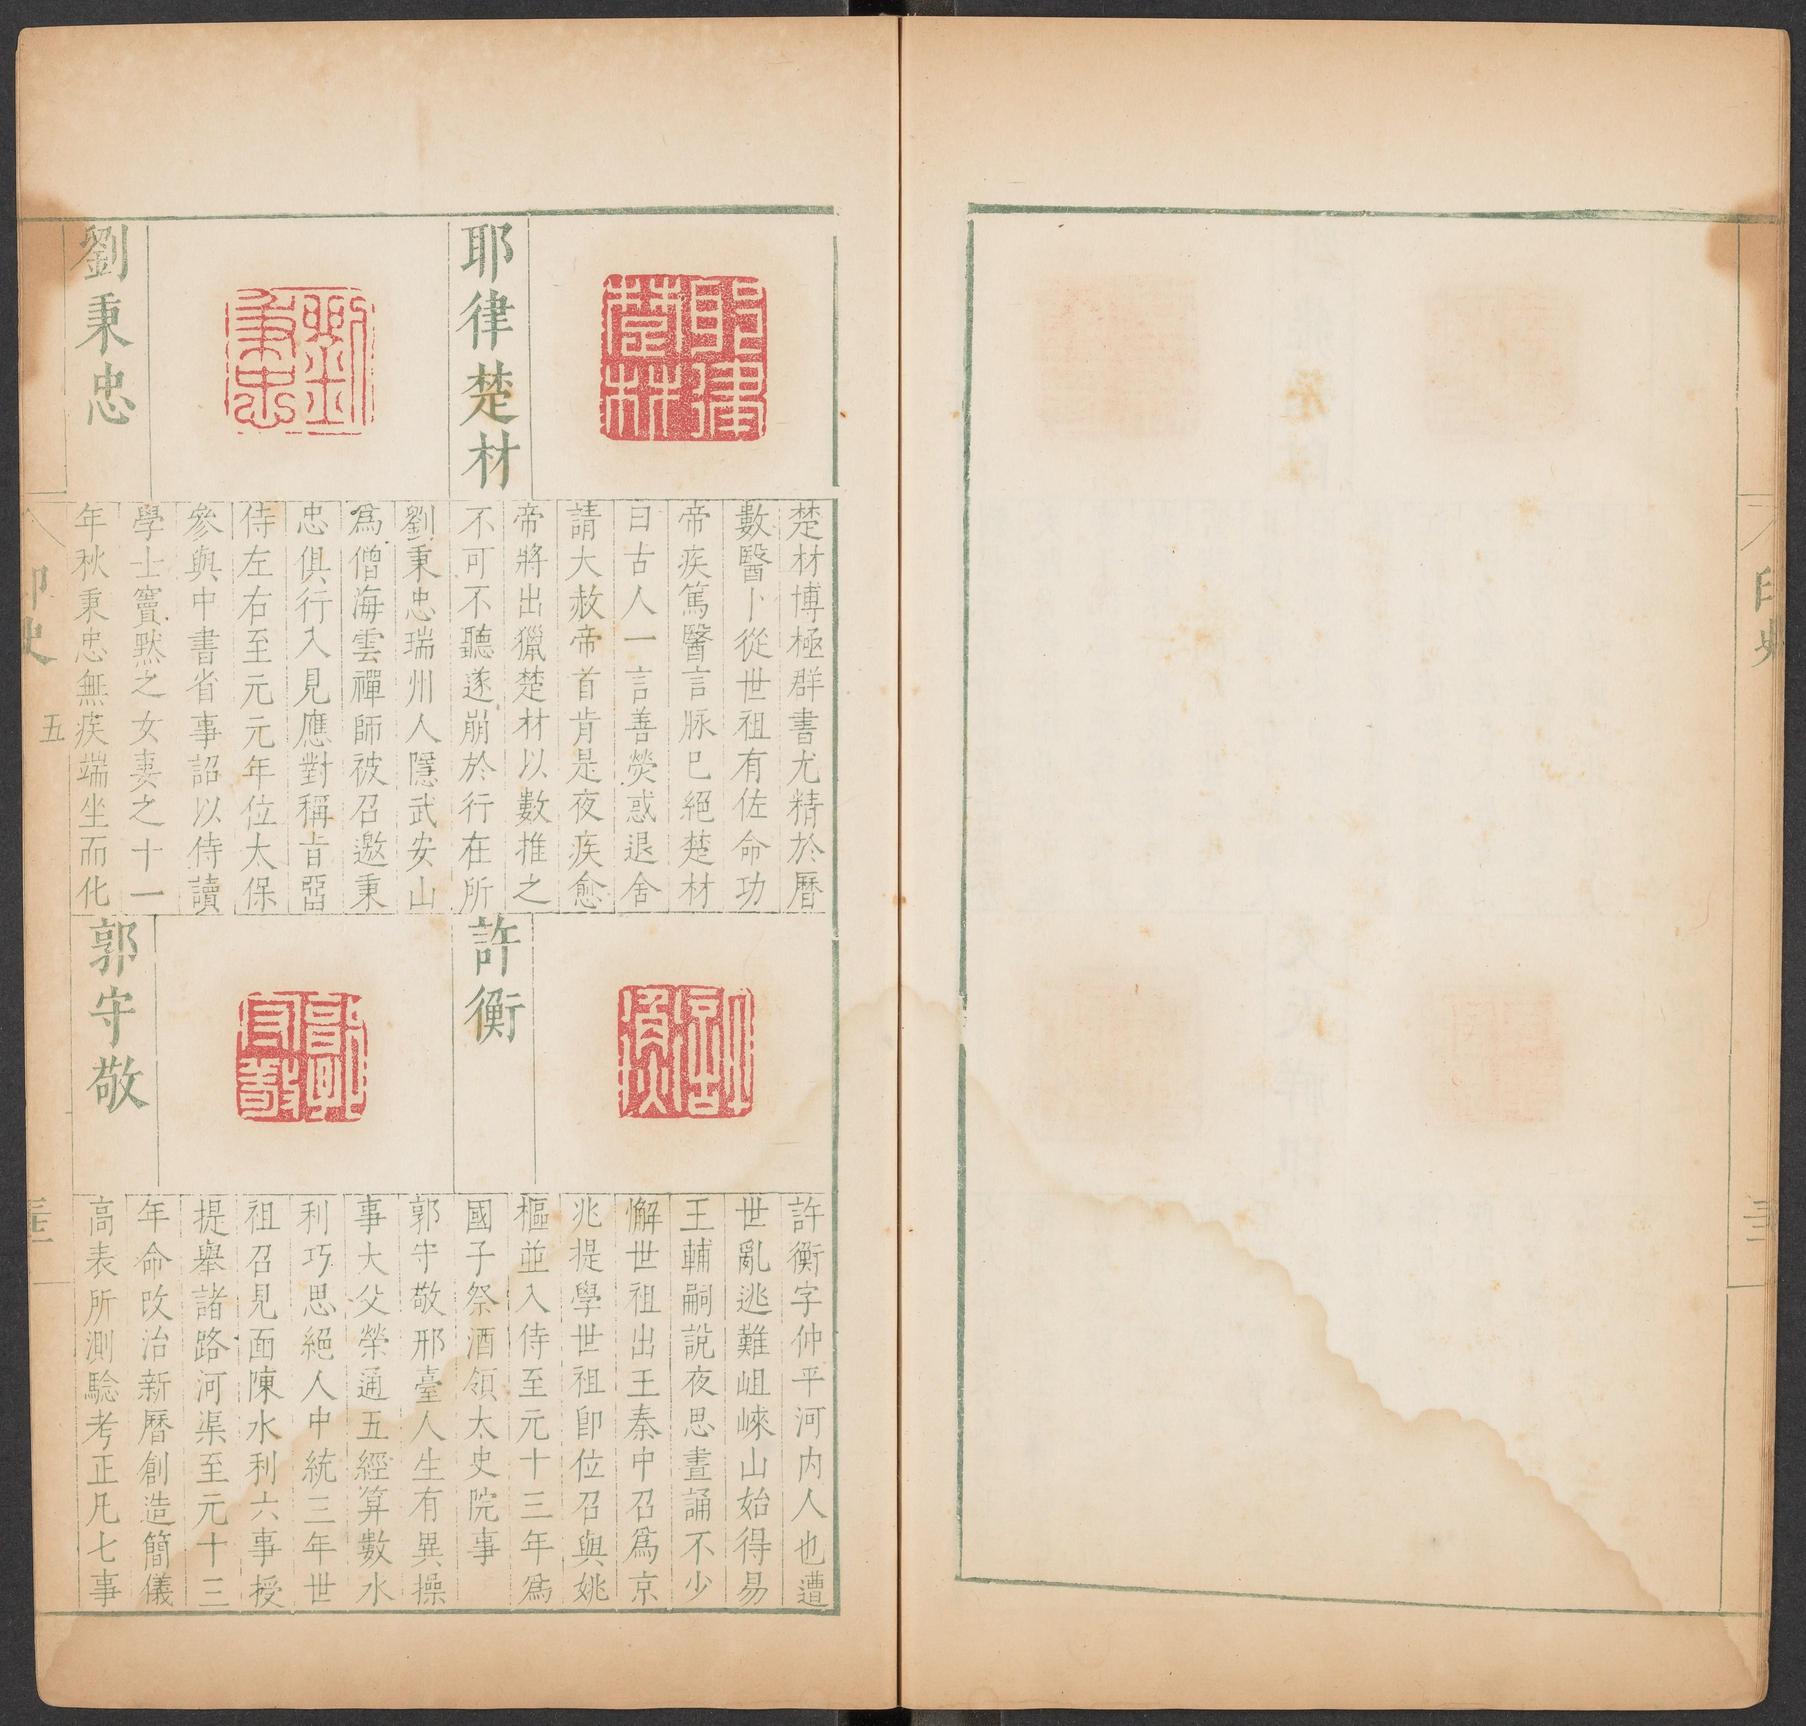 耶律楚材
楚材博極群書尤精於曆
數醫卜從世祖有佐命功
帝疾篤醫言脉已絕楚材
曰古人一言善熒惑退舍
請大赦帝首肯是夜疾愈
帝將出獵楚材以數推之
不可不聽遂崩於行在所
劉秉忠
劉秉忠瑞州人隱武安山
為僧海雲禪師被召邀秉
忠俱行入見應對稱旨畱
侍左右至元元年位太保
參與中書省事詔以侍讀
學士竇默之女妻之十一
年秋秉忠無疾端坐而化
許衡
許衡字仲平河內人也遭
世亂逃難岨崍山始得易
王輔嗣說夜思晝誦不少
懈世祖出王秦中召爲京
兆提學世祖卽位召與姚
樞並入侍至元十三年爲
國子祭酒領太史院事
郭守敬
郭守敬邢臺人生有異操
事大父榮通五經算數水
利巧思絕人中統三年世
祖召見面陳水利六事授
提舉諸路河渠至元十三
年命改治新曆創造簡儀
高表所測騐考正凡七事
印史
五